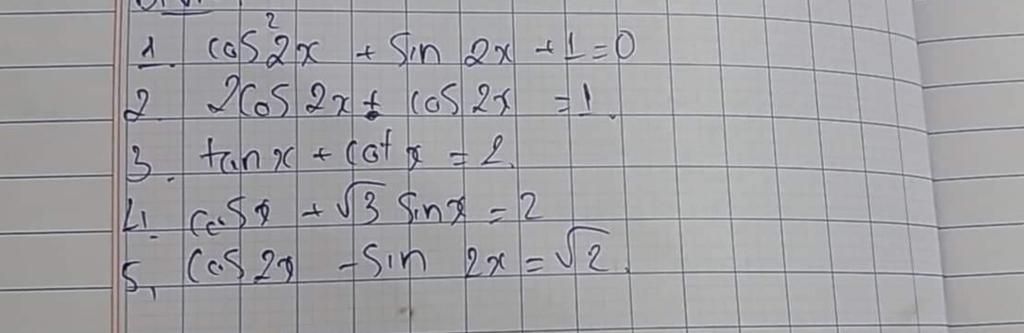 1. cos²2x + sin 2x + 1 = 0
2. 2cos 2x + cos 2x = 1.
3. tan x + cot x = 2.
4. cos x + √3 sin x = 2
5, cos 2x - sin 2x = √2.